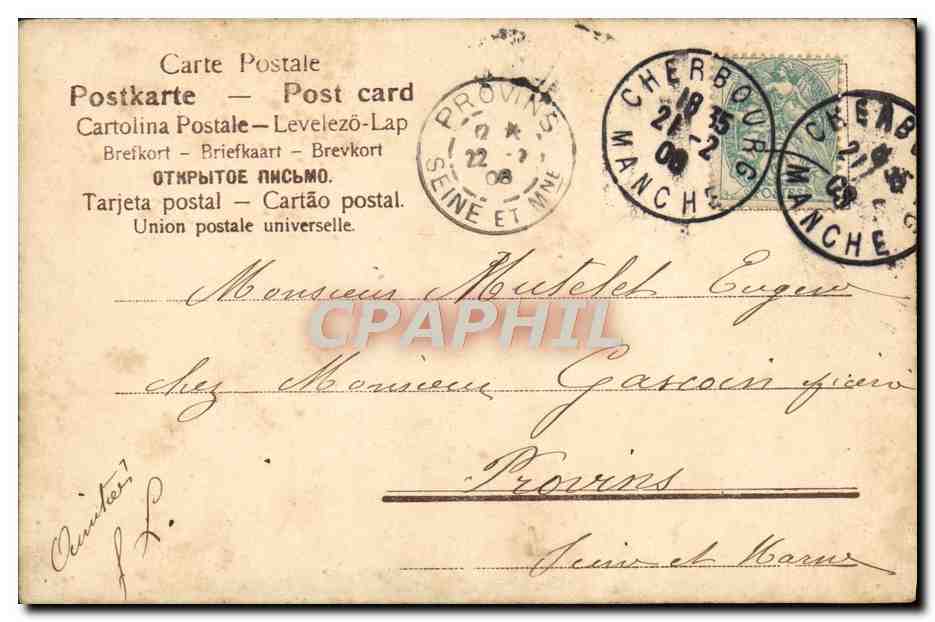 Carte Postale
Postkarte — Post card
Cartolina Postale — Levelezö-Lap
Brefkort – Briefkaart – Brevkort
ОТКРЫТОЕ ПИСЬМО.
Tarjeta postal — Cartão postal.
Union postale universelle.
PROVINS
22
08
SEINE ET MNE
CHERBOURG
18 35
21 -2
MANCHE
CHERB
MANCHE
Monsieur Mutelet Eugene
CPAPHIL
chez Monsieur Gascoin
Provins
Seine et Marne